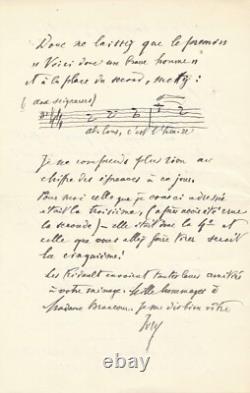 Donc ne laissez que le premier
« Voici donc un brave homme »
Et à la place du second, mettez :
(aux seigneurs)
allons, c'est l'heure
Je ne comprends plus rien au
chiffre des épreuves à ce jour.
Pour moi celle que je vous ai adressée
était la troisième (après avoir été crue
la seconde) – elle était donc la 4e et
celle que vous allez faire tirer serait
la cinquième !
Les envoient toutes leurs amitiés
à votre ménage. Mille hommages à
Madame Je me dis bien vôtre